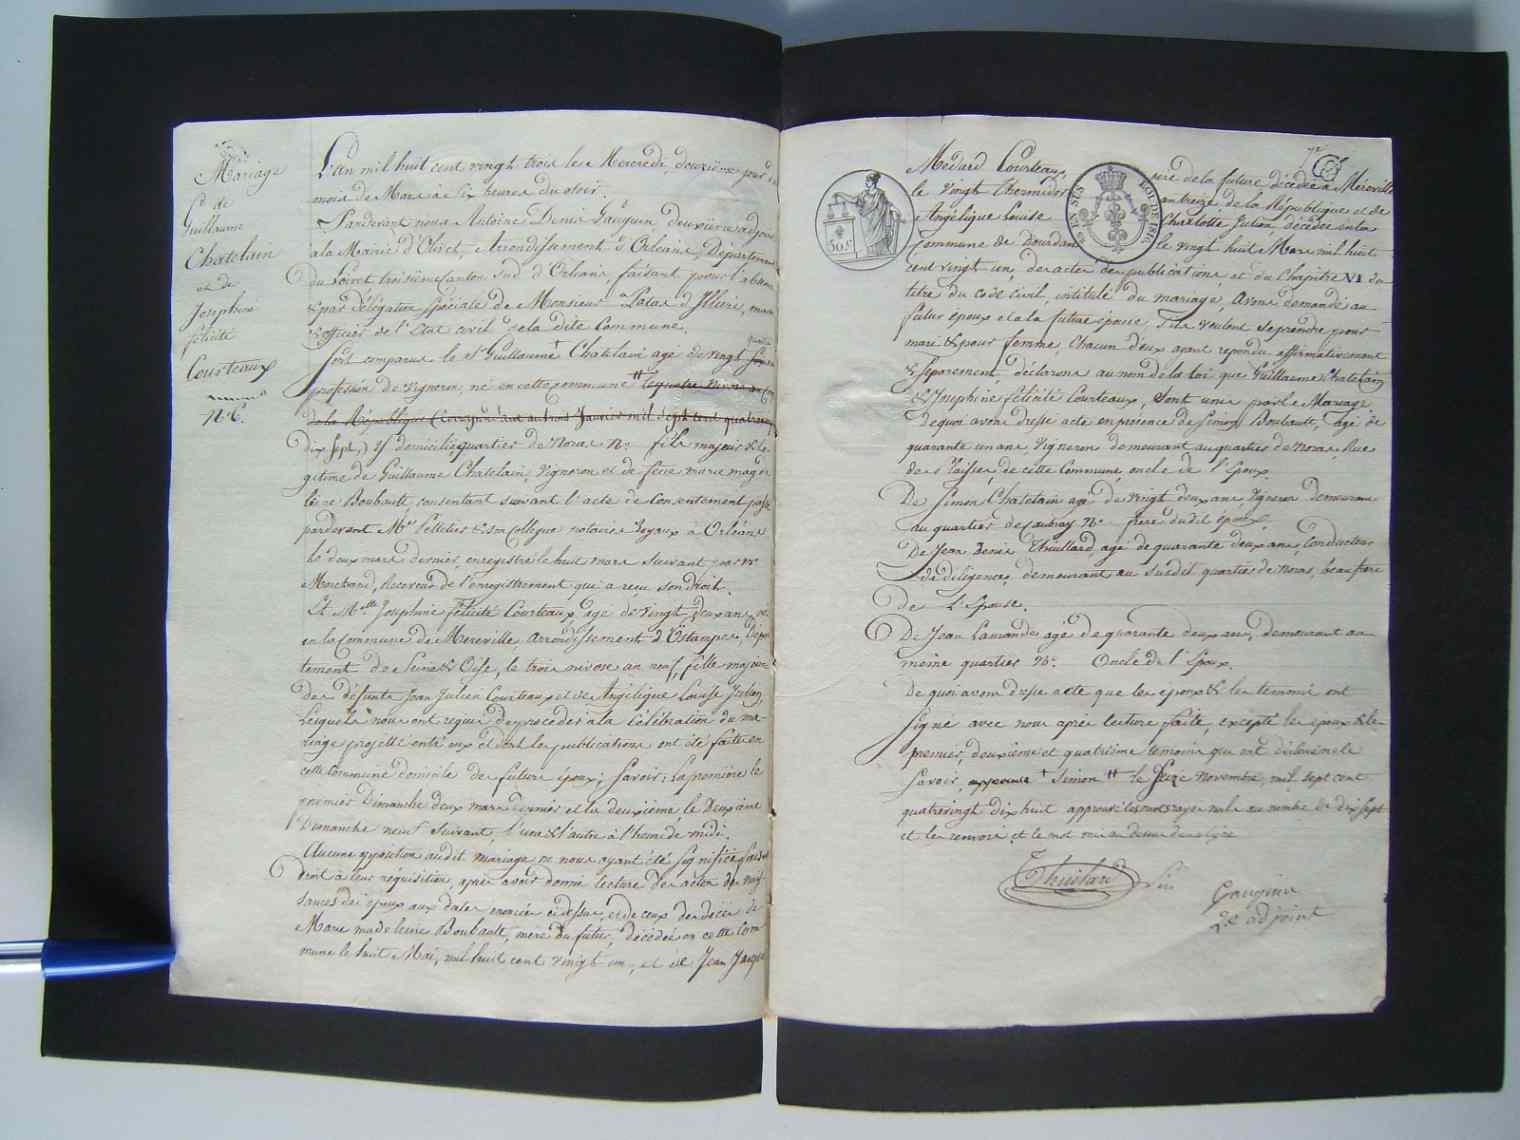 Mariage
de
Guillaume
Chatelain
et de
Josephine
félicité
Courteaux
N.C.
L'an mil huit cent vingt trois le Mercredi douzième jour du
mois de Mars à six heures du soir
Pardevant nous Antoine Denis Gauguin deuxième adjoint
à la Mairie d'Olivet, Arrondissement d'Orléans, Département
du Loiret troisième Canton Sud d'Orléans faisant pour l'absence
& par délégation spéciale de Monsieur Palas d'Illiers, maire
& officier de l'Etat civil de la dite Commune.
sont comparus le Sr Guillaume + Chatelain agé de vingt
profession de vigneron, né en cette commune # le quatre Nivose an Cinq
de la République (vingt quatre Janvier mil sept cent quatre vingt
dix sept,) y domicilié quartier de Noras No fils majeur & lé-
gitime de Guillaume Chatelain, vigneron et de feue marie magde-
leine Boubault, consentant suivant l'acte de Consentement passé
pardevant Me Pelletier & son Collegue notaires Royaux à Orléans
le deux mars dernier, enregistré le huit mars suivant par Mr
Monchand, Receveur de l'enregistrement qui a reçu son droit.
Et Melle Josephine félicité Courteaux, agé de vingt deux ans, née
en la Commune de Mereville, Arrondissement d'Etampes, Dépar-
tement de Seine & Oise, le trois nivose an neuf, fille majeure
des défunts Jean Julien Courteaux et de Angelique Louise Julien,
Lesquels nous ont requis de procéder à la Célébration du ma-
riage projetté entr'eux et dont les publications ont été faites en
cette Commune domicile des futurs époux; Savoir: La première le
premier Dimanche deux mars dernier et la deuxième, le Deuxième
Dimanche neuf suivant, l'une & l'autre à l'heure de midi.
Aucune opposition audit mariage ne nous ayant été signifiée faisant
droit à leur réquisition, après avoir donné lecture des actes de nais-
sances des époux aux dates énoncées cidessus, et de ceux de décès de
Marie madeleine Boubault, mère du futur, décédée en cette Com-
mune le huit Mai, mil huit cent vingt un, et de Jean Jacques
Médard Courteaux, père de la future décédé à Méreville
le vingt thermidor an treize de la République et de
Angélique Louise Charlotte Julien décédée en la
Commune de Dourdan le vingt huit Mars mil huit
cent vingt un, des actes des publications, et du Chapitre VI du
titre du code Civil, intitulé du mariage, Avons demandé au
futur époux et à la future épouse s'ils veulent se prendre pour
mari & pour femme, Chacun d'eux ayant répondu affirmativement
& séparement, déclarons au nom de la Loi que Guillaume Chatelain
& Josephine félicité Courteaux, sont unis par le Mariage
De quoi avons dressé acte en présence de Simon Boubault, agé de
quarante un ans, Vigneron demeurant au quartier de Noras Rue
de , de cette Commune, oncle de l'Epoux
De Simon Chatelain agé de vingt deux ans, Vigneron demeurant
au quartier de No frère dudit époux,
De Jean Denis Thuillard, agé de quarante deux ans, Conducteur
de diligences demeurant au susdit quartier de Noras, beau frère
de l'Epouse.
De Jean Lamande agé de quarante deux ans, demeurant au
même quartier No Oncle de l'Epoux
De quoi avons dressé acte que les époux & les temoins ont
signé avec nous après lecture faite, excepté les époux & le
premier, deuxième et quatrième temoins qui ont déclaré ne le
savoir, approuvé + Simon # le Seize Novembre, mil sept cent
quatrevingt dix huit approuvé les mots rayés nuls au nombre de dix sept
et les renvois et le mot mis au dessus de la ligne
Thuilard
Gauguin
2e adjoint
50 c